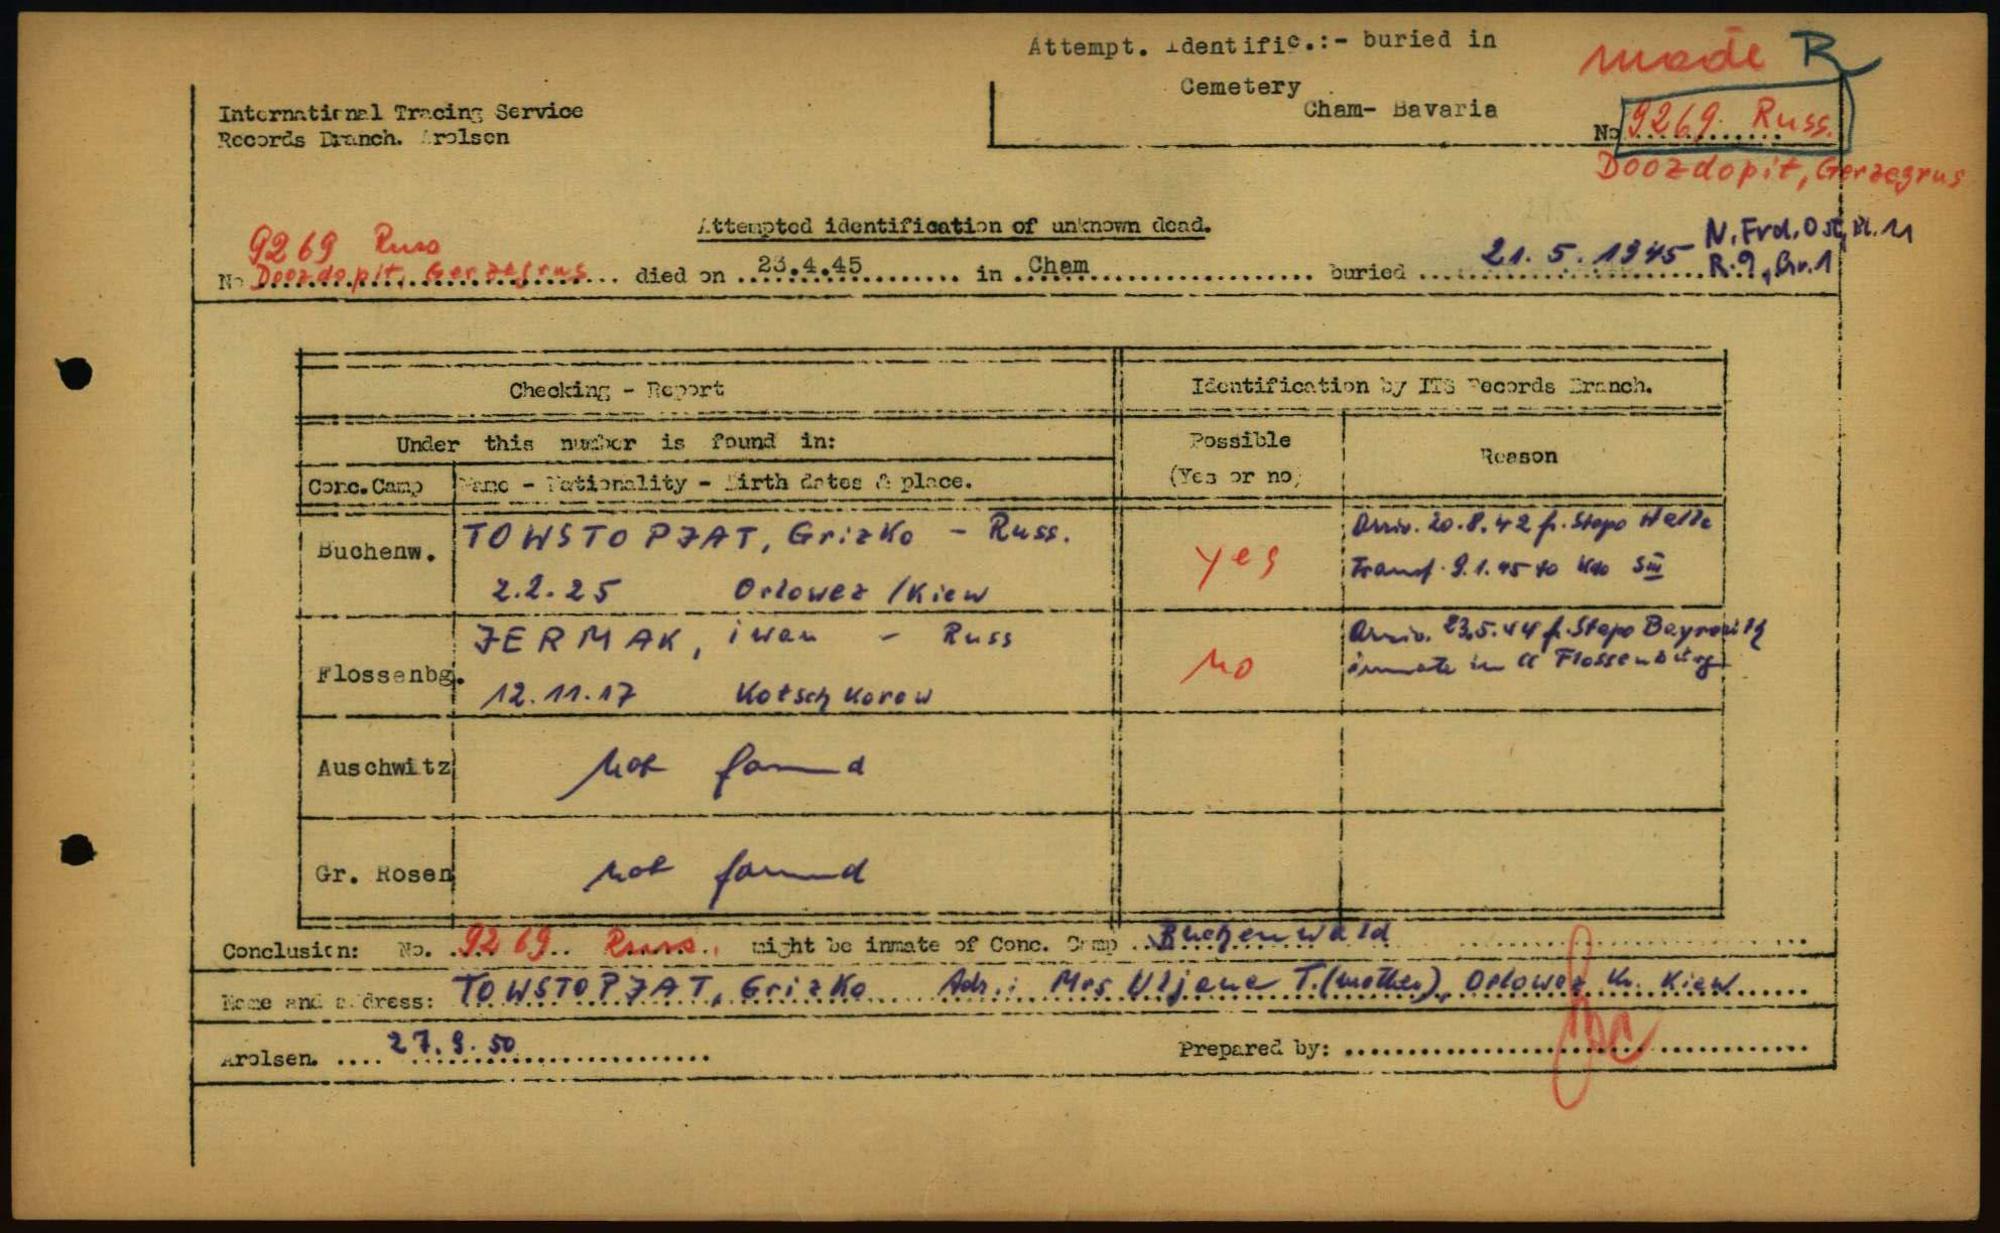 Attempt. Identific.:- buried in
Cemetery
Cham- Bavaria
made R
No 9269 Russ.
Doozdopit, Gerzegrus
International Tracing Service
Records Branch. Arolsen
Attempted identification of unknown dead.
9269 Russ
No Doozdopit, Gerzegrus died on 23.4.45 in Cham buried 21.5.1945 N. Frd. Ost, Bl. 11
R. 9, Gr. 1
Checking - Report
Identification by ITS Records Branch.
Under this number is found in:
Possible
(Yes or no)
Reason
Conc. Camp
Name - Nationality - Birth dates & place.
Buchenw.
TOWSTOPJAT, Grizko - Russ.
2.2.25 Orlowez /Kiew
yes
Arriv. 20.8.42 fr. Stapo Halle
Transf. 9.1.45 to Kdo SIII
Flossenbg.
JERMAK, iwan - Russ
12.11.17 Kotschkorow
no
Arriv. 23.5.44 fr. Stapo
inmate in CC Flossenbürg
Auschwitz
not found
Gr. Rosen
not found
Conclusion: No. 9269 Russ. might be inmate of Conc. Camp Buchenwald
Name and address: TOWSTOPJAT, Grizko Adr.: Mrs Uljana T. (mother), Orlowez Kr. Kiew
Arolsen. 27.9.50
Prepared by: